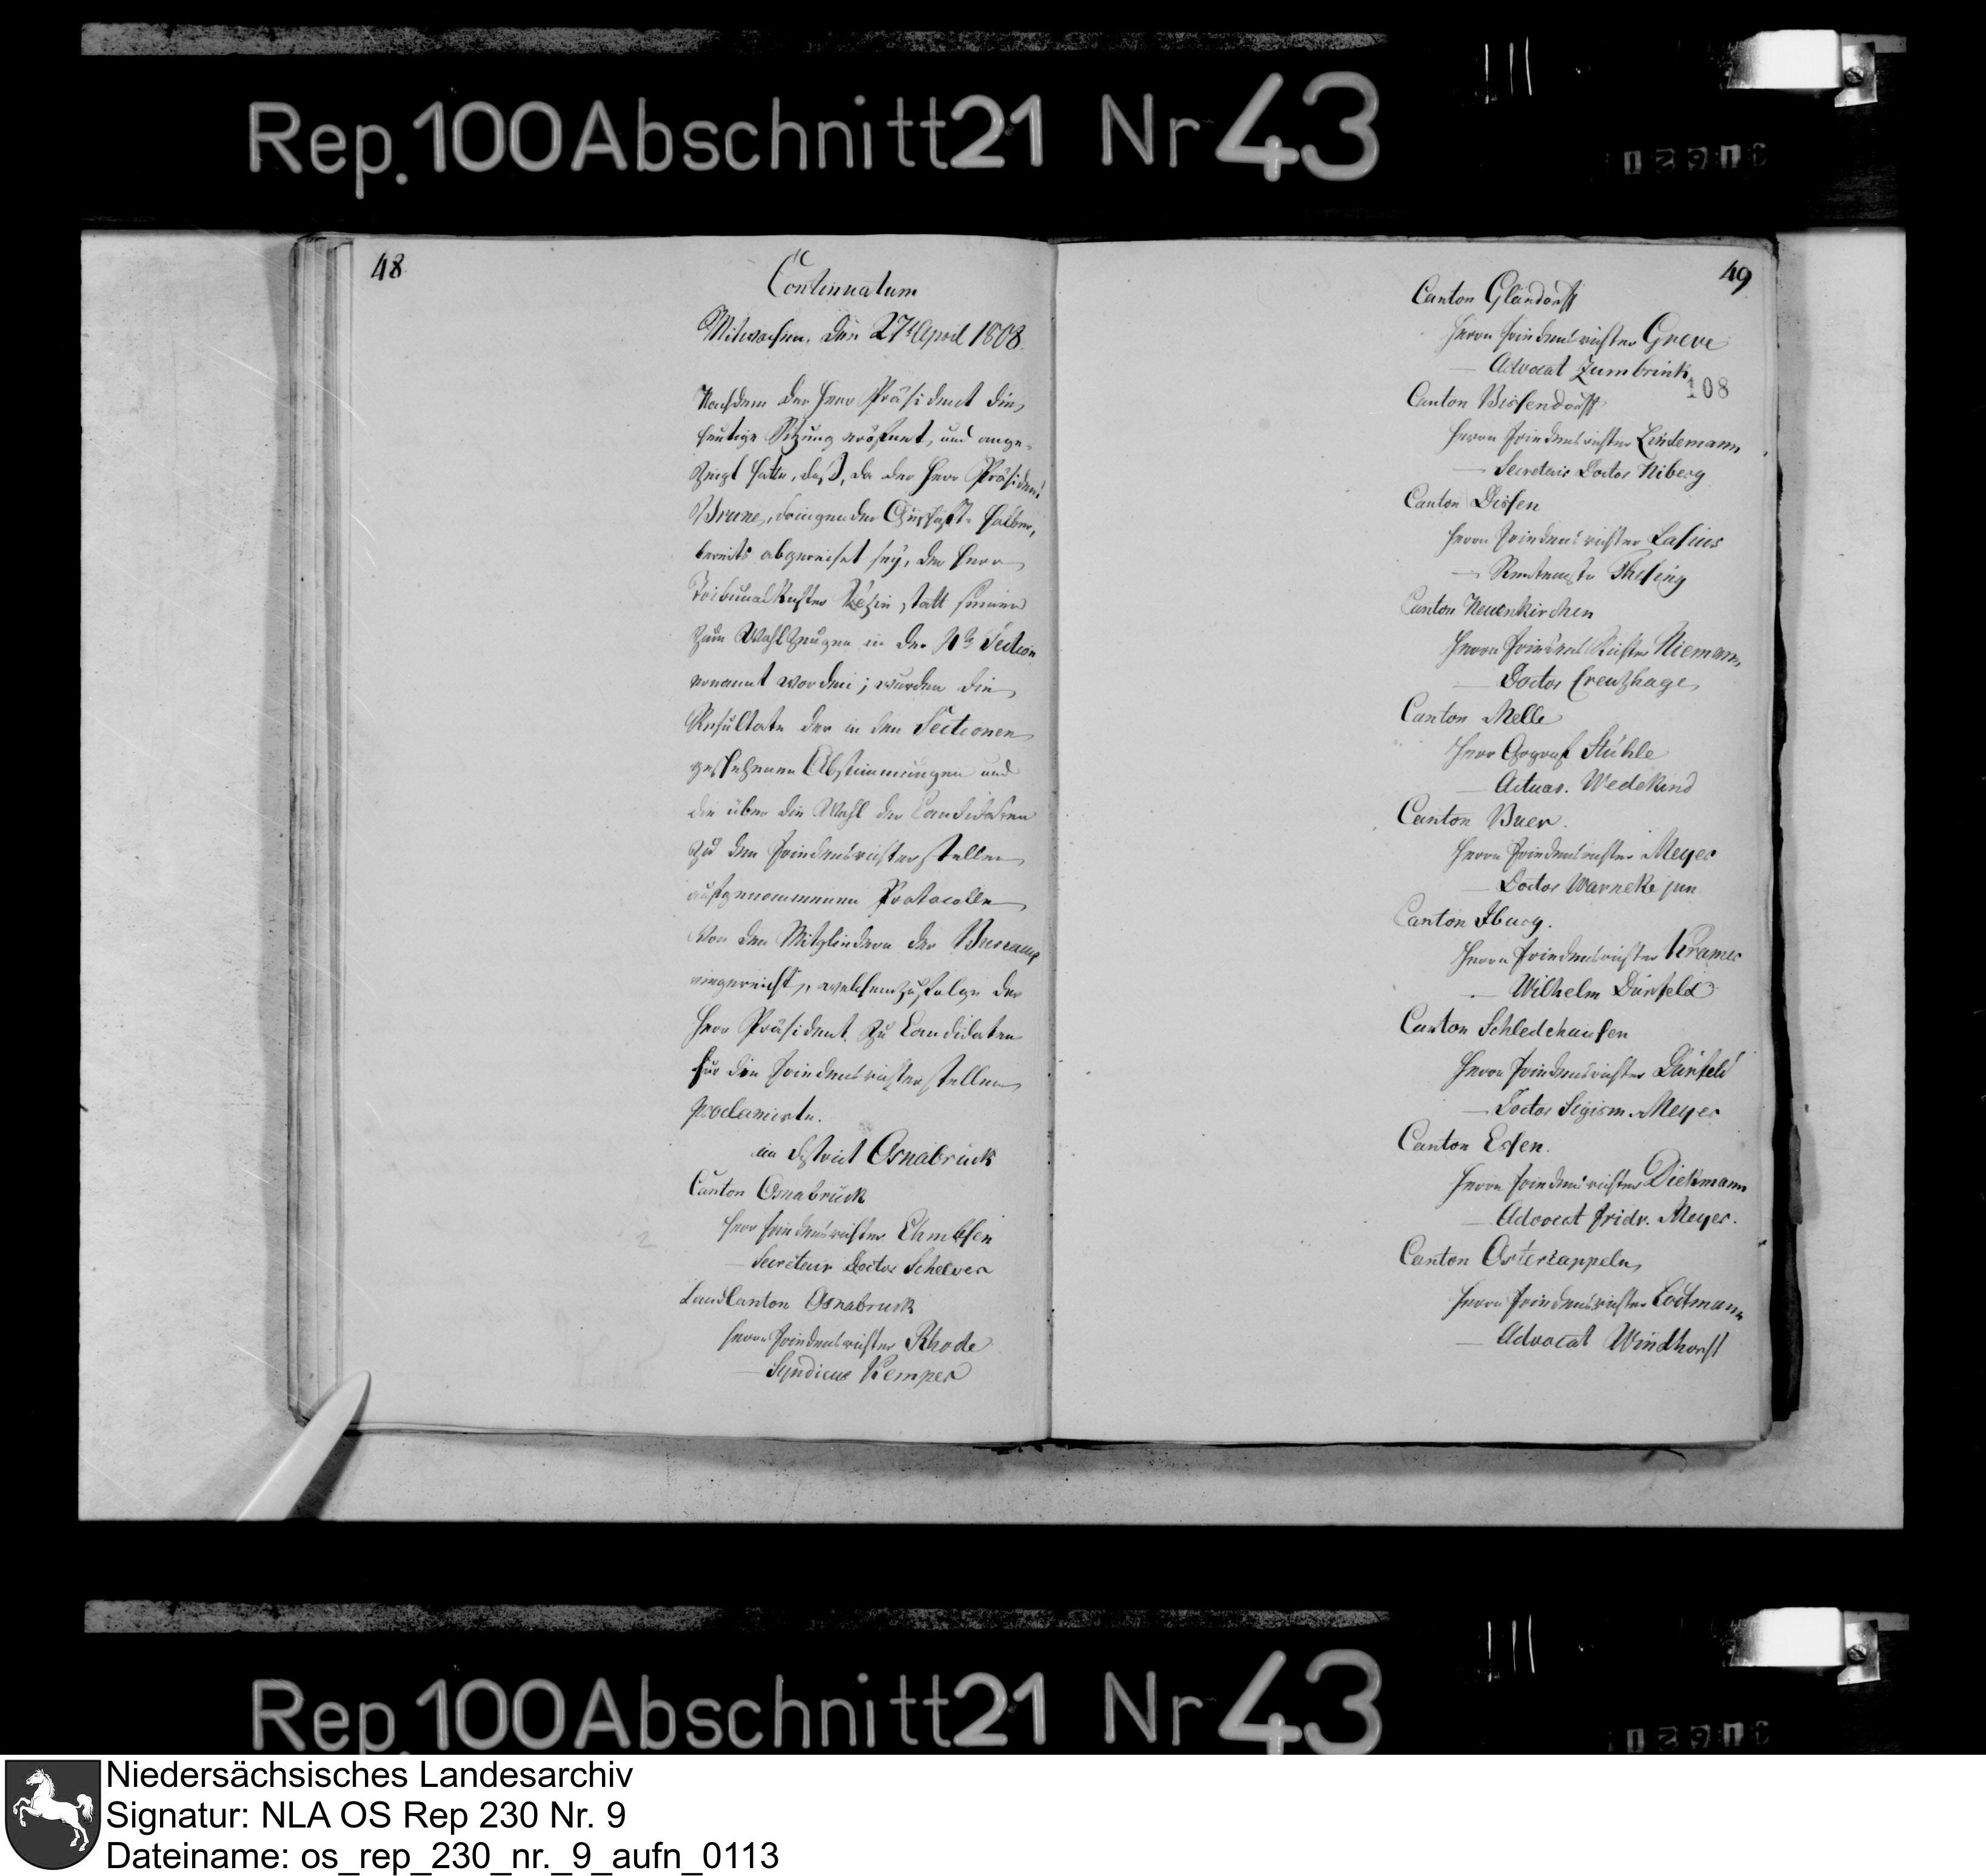 Rep. 100 Abschnitt 21 Nr 43
12910
48
Continuatum
Mitwochen, den 27t April 1808.
Nachdem der Herr Präsident die
heutige Sitzung eröfnet, und ange-
zeigt hatte, daß, da der Herr Präsident
Brune, dringender Geschäfte halber,
bereits abgereiset sey, der Herr
Tribunal Richter statt seiner
zum Wahlzeugen in der Section
ernannt worden; wurden die
Resultate der in den Sectionen
geschehenen Abstimmungen und
die über die Wahl der Candidaten
zu den Friedensrichterstellen
aufgenommenen Protocolle
von den Mitgliedern der Bureaux
eingereicht, welchemzufolge der
Herr Präsident zu Candidaten
für die Friedensrichterstellen
proclamirte.
im District Osnabrück
Canton Osnabrück
Herr Friedensrichter Ehmbsen
— Secretair Doctor Schelver
LandCanton Osnabruck
Herrn Friedensrichter Rhode
— Syndicus Kemper
49
Canton Glandorff
Herrn Friedensrichter Greve
— Advocat Zumbrink
108
Canton Bissendorff
Herrn Friedensrichter Lindemann
— Secretair Doctor Niberg
Canton Dissen
Herrn Friedensrichter Lasius
— Rentmeistr Thesing
Canton Neuenkirchen
Herrn Friedens Richter Niemann
— Doctor Creutzhage
Canton Melle
Herr Gograf Stühle
— Actuar. Wedekind
Canton Buer.
Herrn Friedensrichter Meyer
— Doctor Warneke jun
Canton Iburg.
Herrn Friedensrichter Kramer
— Wilhelm Dürfeld
Canton Schledehausen
Herrn Friedensrichter Dürfeld
— Doctor Sigism. Meyer
Canton Essen.
Herrn Friedensrichter Diekmann
— Advocat Fridr. Meyer.
Canton Ostercappeln
Herrn Friedensrichter Lodtmann
— Advocat Windhorst
Rep. 100 Abschnitt 21 Nr 43
12910
Niedersächsisches Landesarchiv
Signatur: NLA OS Rep 230 Nr. 9
Dateiname: os_rep_230_nr._9_aufn_0113